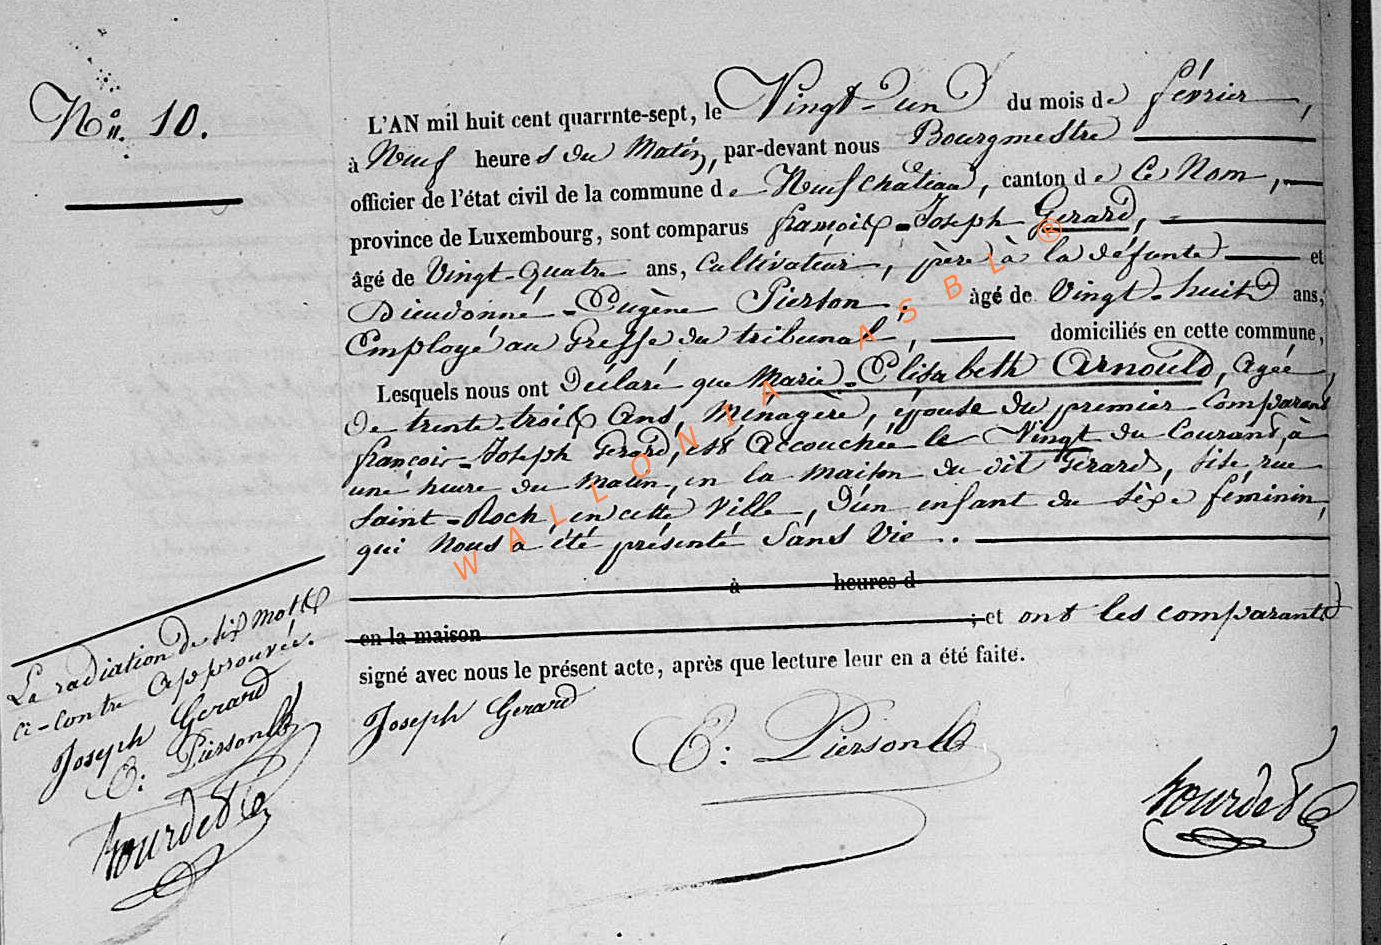 No. 10.
L'AN mil huit cent quarrnte-sept, le Vingt-un du mois de février,
à Neuf heures du Matin, par-devant nous Bourgmestre
officier de l'état civil de la commune de Neufchâteau, canton de Ce Nom,
province de Luxembourg, sont comparus françois-Joseph Gerard,
âgé de Vingt-quatre ans, Cultivateur, père à la défunte et
Dieudonné-Eugène Pierson, âgé de Vingt-huit ans,
Employé au Greffe du tribunal, domiciliés en cette commune,
Lesquels nous ont Déclaré que Marie-Elisabeth Arnould, agée
de trente trois ans, Ménagère, épouse du premier Comparant
françois-Joseph Gerard, est Accouchée le Vingt du Courant, à
une heure du Matin, en la maison du dit Gerard, sise rue
Saint-Roch, en cette Ville, d'un enfant du sèxe féminin,
qui Nous a été présenté Sans Vie.
à heures d
en la maison ; et ont les comparants
signé avec nous le présent acte, après que lecture leur en a été faite.
Joseph Gerard
E: Pierson
La radiation de six mots
ci-contre approuvée.
Joseph Gerard
E: Pierson
WALLONIA ASBL ®